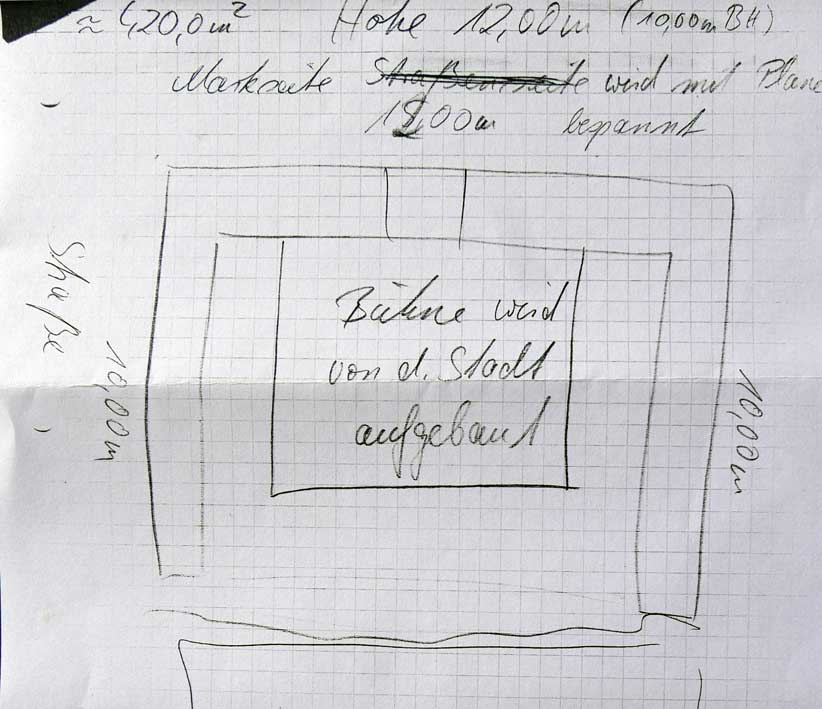 ≈ 420,0 m² Höhe 12,00m (10,00m BH)
Marktseite Straßenseite wird mit Plane
18,00m bespannt
Straße
10,00m
Bühne wird
von d. Stadt
aufgebaut
10,00m